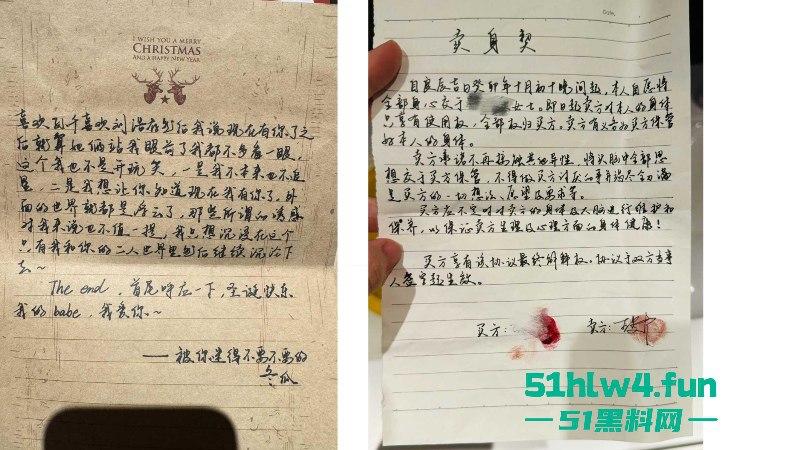 I WISH YOU A MERRY
CHRISTMAS
AND A HAPPY NEW YEAR
喜欢刘浩存到后我说现在有你了之
后就算她俩站我眼前了我都不多看一眼,
这个我也不是开玩笑,一是我本来也不追
星,二是我想让你知道现在我有你了,外
面的世界就都是浮云了,那些所谓的诱惑
对我来说也不值一提,我只想沉浸在这个
只有我和你的二人世界里到后继续沉沦下
去~
The end,首尾呼应一下,圣诞快乐
我的babe,我爱你~
——被你迷得不要不要的
冬瓜
Date.
卖身契
自良辰吉日癸卯年十月初十晚间起,本人自愿将
全部身心卖于 女士。即日起卖方对本人的身体
只享有使用权,全部权归买方。卖方有义务为买方保管
好本人的身体。
卖方承诺不再接触其他异性,将头脑中全部思
想交于买方保管,不得做买方讨厌的事并竭尽全力满
足买方的一切想法、愿望及要求等。
买方应不定时对卖方的身体及大脑进行维护和
保养,以保证卖方生理及心理方面的身体健康!
买方享有该协议最终解释权。协议于双方当事
人签字起生效。
买方: 卖方:
51hlw4.fun
—51黑料网—